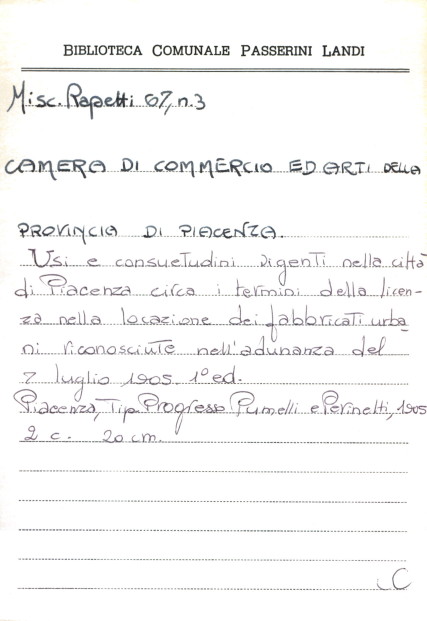 BIBLIOTECA COMUNALE PASSERINI LANDI
Misc. Rapetti 67, n.3
CAMERA DI COMMERCIO ED ARTI DELLA
PROVINCIA DI PIACENZA.
Usi e consuetudini vigenti nella città
di Piacenza circa i termini della licen-
za nella locazione dei fabbricati urba-
ni riconosciute nell'adunanza del
7 luglio 1905. 1° ed.
Piacenza, Tip. Progresso Pumelli e Perinetti, 1905
2 c. 20 cm.
C